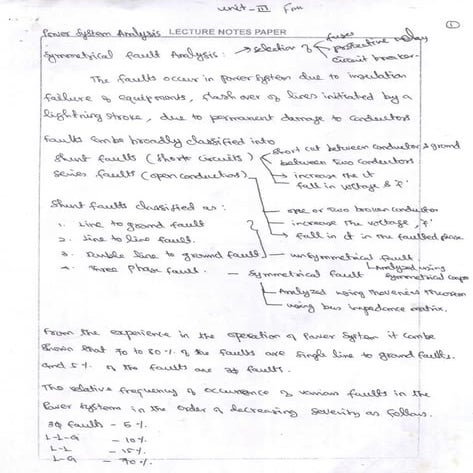 Unit - III
1
Power System Analysis LECTURE NOTES PAPER
fuses
Symmetrical Fault Analysis : → selection of protective relay
Circuit breaker
The faults occur in power system due to insulation
failure of equipments, flash over of lines initiated by a
lightning stroke, due to permanent damage to conductors
Faults can be broadly classified into
Shunt faults (short circuits)
short cut between conductor & ground
between two conductors
increase the ct
fall in voltage & 'f'
series faults (open conductors)
one or two broken conductor
increase the voltage, 'f'
fall in ct in the faulted phase
Shunt faults classified as :
1. Line to ground fault
2. Line to line fault.
3. Double line to ground fault - unsymmetrical fault
Analyzed using
symmetrical
4. Three phase fault. - symmetrical fault
Analyzed using Thevenin's theorem
using bus impedance matrix.
From the experience in the operation of Power System it can be
shown that 70 to 80 % of the faults are single line to ground faults.
and 5 % of the faults are 3φ faults.
The relative frequency of occurrence of various faults in the
Power system in the order of decreasing severity as follows.
3φ faults - 5 %
L-L-G - 10 %
L-L - 15 %
L-G - 70 %